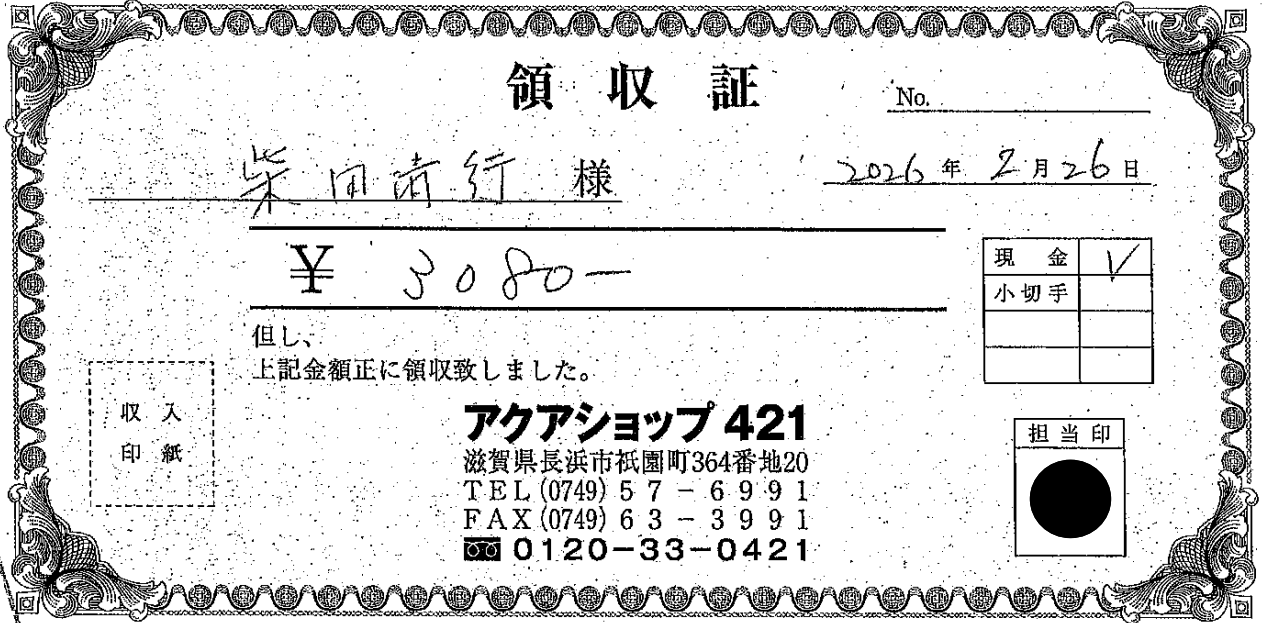 領収証
No.
柴田 行 様
2026年2月26日
¥ 3080-
現金 V
小切手
但し、
上記金額正に領収致しました。
収入
印紙
アクアショップ 421
滋賀県長浜市祇園町364番地20
TEL(0749)57-6991
FAX(0749)63-3991
0120-33-0421
担当印